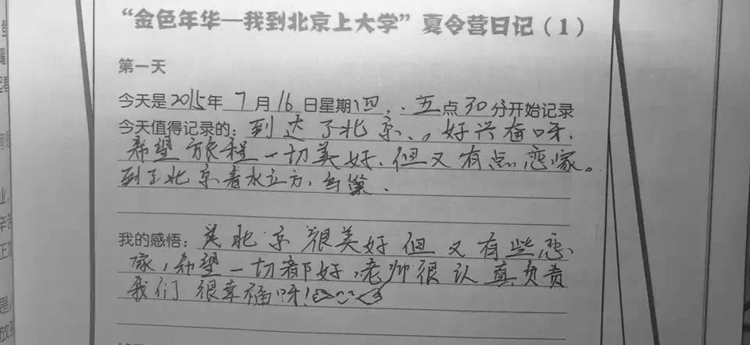 “金色年华—我到北京上大学”夏令营日记（1）
第一天
今天是2015年 7月16日星期四，五点30分开始记录
今天值得记录的：到达了北京，好兴奋呀，
希望旅程一切美好，但又有点恋家。
到了北京看水立方，鸟巢。
我的感悟：北京很美好但又有些恋
家，希望一切都好，老师很认真负责
我们很幸福呀！